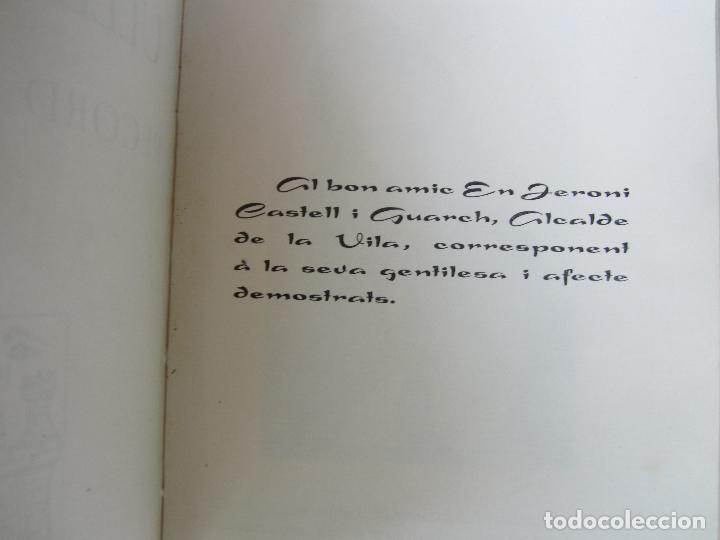 Al bon amic En Jeroni
Castell i Guarch, Alcalde
de la Vila, corresponent
à la seva gentilesa i afecte
demostrats.
todocoleccion.net